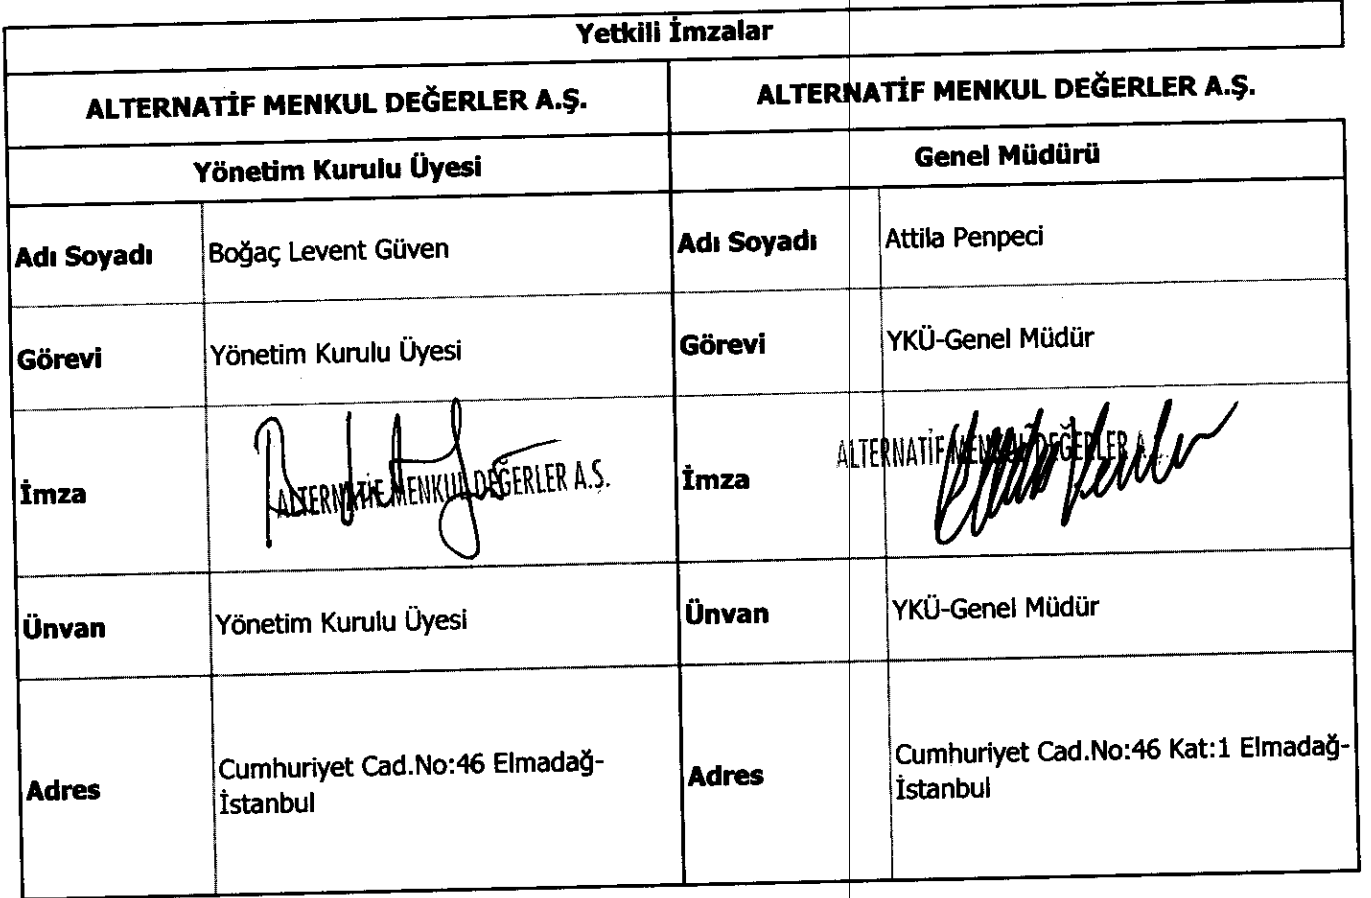 Yetkili İmzalar
ALTERNATİF MENKUL DEĞERLER A.Ş. ALTERNATİF MENKUL DEĞERLER A.Ş.
Yönetim Kurulu Üyesi Genel Müdürü
Adı Soyadı Boğaç Levent Güven Adı Soyadı Attila Penpeci
Görevi Yönetim Kurulu Üyesi Görevi YKÜ-Genel Müdür
İmza ALTERNATİF MENKUL DEĞERLER A.Ş. İmza ALTERNATİF MENKUL DEĞERLER A.
Ünvan Yönetim Kurulu Üyesi Ünvan YKÜ-Genel Müdür
Adres Cumhuriyet Cad.No:46 Elmadağ- Adres Cumhuriyet Cad.No:46 Kat:1 Elmadağ-
İstanbul İstanbul